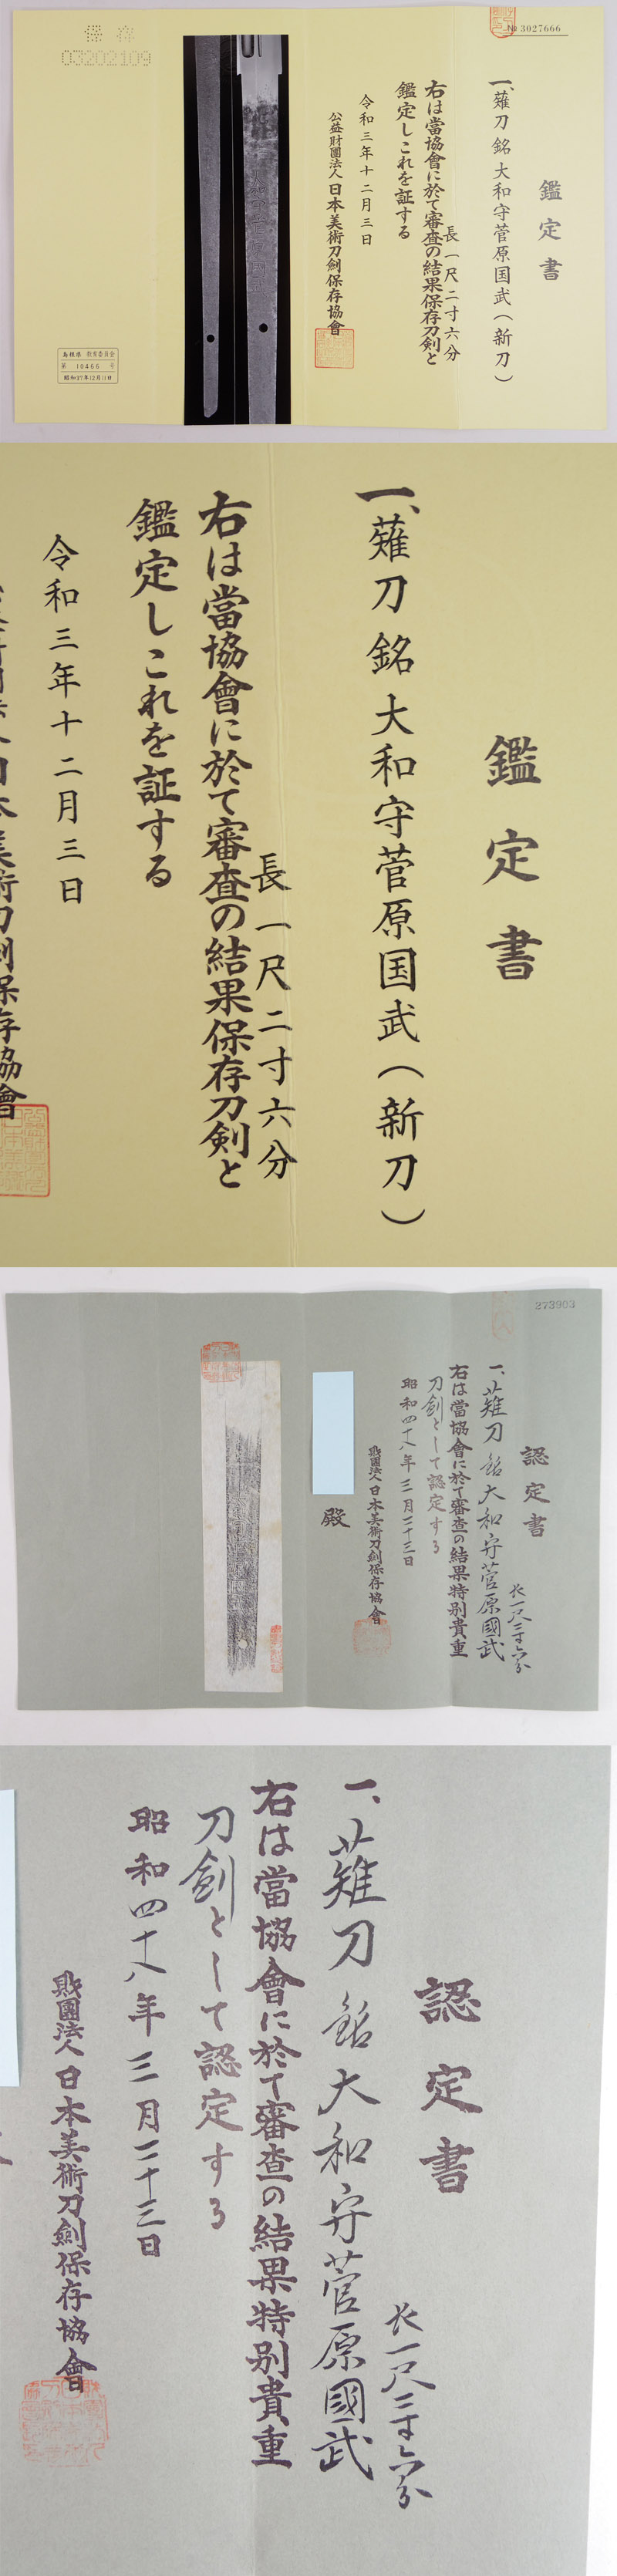 № 3027666
鑑定書
一、薙刀 銘 大和守菅原国武(新刀)
長 一尺二寸六分
右は當協會に於て審査の結果保存刀剣と
鑑定しこれを証する
令和三年十二月三日
公益財團法人 日本美術刀劍保存協會
保存
03202109
島根県 教育委員会
第 10466 号
昭和37年12月11日
鑑定書
一、薙刀 銘 大和守菅原国武(新刀)
長 一尺二寸六分
右は當協會に於て審査の結果保存刀剣と
鑑定しこれを証する
令和三年十二月三日
日本美術刀劍保存協會
273903
認定書
一、薙刀 銘 大和守菅原國武
長一尺二寸六分
右は當協會に於て審査の結果特別貴重
刀劍として認定する
昭和四十八年三月二十三日
財團法人 日本美術刀劍保存協會
殿
認定書
一、薙刀 銘 大和守菅原國武
長一尺二寸六分
右は當協會に於て審査の結果特別貴重
刀劍として認定する
昭和四十八年三月二十三日
財團法人 日本美術刀劍保存協會